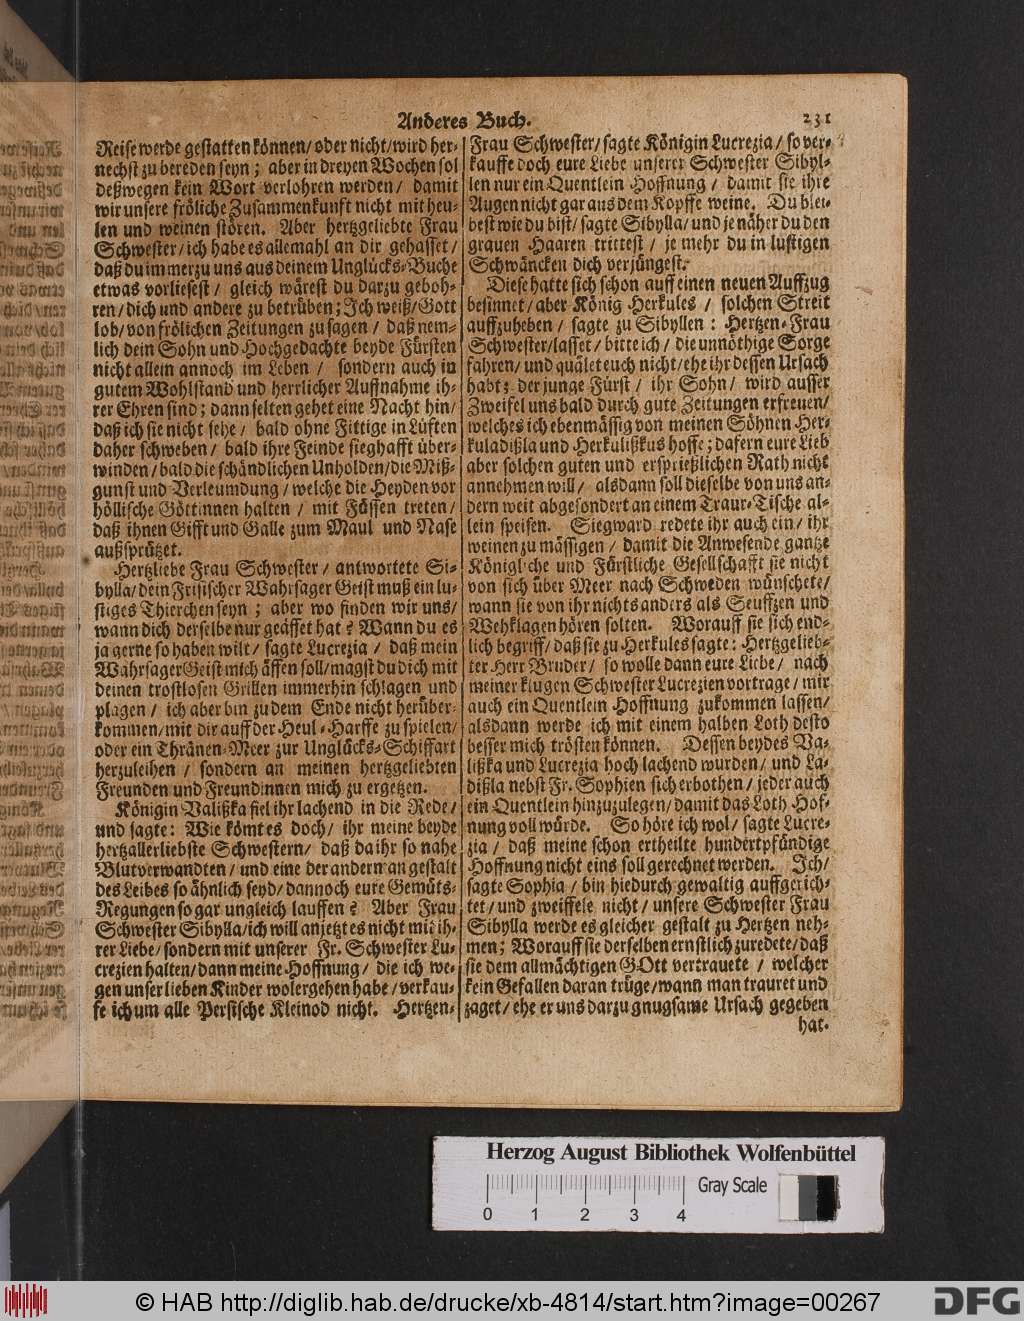 Anderes Buch. 231
Reise werde gestatten können/ oder nicht/ wird her-
nechst zu bereden seyn; aber in dreyen Wochen sol
deßwegen kein Wort verlohren werden/ damit
wir unsere fröliche Zusammenkunft nicht mit heu-
len und weinen stören. Aber hertzgeliebte Frau
Schwester/ ich habe es allemahl an dir gehasset/
daß du immerzu uns aus deinem Unglücks-Buche
etwas vorliesest/ gleich wärest du darzu geboh-
ren/ dich und andere zu betrüben; Ich weiß/ Gott
lob/ von frölichen Zeitungen zu sagen/ daß nem-
lich dein Sohn und Hochgedachte beyde Fürsten
nicht allein annoch im Leben/ sondern auch in
gutem Wohlstand und herrlicher Auffnahme ih-
rer Ehren sind; dann selten gehet eine Nacht hin/
daß ich sie nicht sehe/ bald ohne Fittige in Lüften
daher schweben/ bald ihre Feinde sieghafft über-
winden/ bald die schändlichen Unholden/ die Miß-
gunst und Verleumdung/ welche die Heyden vor
höllische Göttinnen halten/ mit Füssen treten/
daß ihnen Gifft und Galle zum Maul und Nase
außsprützet.
Hertzliebe Frau Schwester/ antwortete Si-
bylla/ dein Frisischer Wahrsager Geist muß ein lu-
stiges Thierchen seyn; aber wo finden wir uns/
wann dich derselbe nur geäffet hat? Wann du es
ja gerne so haben wilt/ sagte Lucrezia/ daß mein
WahrsagerGeist mich äffen soll/ magst du dich mit
deinen trostlosen Grillen immerhin schlagen und
plagen/ ich aber bin zu dem Ende nicht herüber-
kommen/ mit dir auff der Heul-Harffe zu spielen/
oder ein Thränen-Meer zur Unglücks-Schiffart
herzuleihen/ sondern an meinen hertzgeliebten
Freunden und Freundinnen mich zu ergetzen.
Königin Valißka fiel ihr lachend in die Rede/
und sagte: Wie kömt es doch/ ihr meine beyde
hertzallerliebste Schwestern/ daß da ihr so nahe
Blutverwandten/ und eine der andern an gestalt
des Leibes so ähnlich seyd/ dannoch eure Gemüts-
Regungen so gar ungleich lauffen? Aber Frau
Schwester Sibylla/ ich will anjetzt es nicht mit ih-
rer Liebe/ sondern mit unserer Fr. Schwester Lu-
crezien halten/ dann meine Hoffnung/ die ich we-
gen unser lieben Kinder wolergehen habe/ verkau-
fe ich um alle Persische Kleinod nicht. Hertzen-
Frau Schwester/ sagte Königin Lucrezia/ so ver-
kauffe doch eure Liebe unserer Schwester Sibyl-
len nur ein Quentlein Hoffnung/ damit sie ihre
Augen nicht gar aus dem Kopffe weine. Du blei-
best wie du bist/ sagte Sibylla/ und je näher du den
grauen Haaren trittest/ je mehr du in lustigen
Schwäncken dich verjüngest.
Diese hatte sich schon auff einen neuen Auffzug
besinnet/ aber König Herkules/ solchen Streit
auffzuheben/ sagte zu Sibyllen: Hertzen-Frau
Schwester/ lasset/ bitte ich/ die unnöthige Sorge
fahren/ und quälet euch nicht/ ehe ihr dessen Ursach
habt; der junge Fürst/ ihr Sohn/ wird ausser
Zweifel uns bald durch gute Zeitungen erfreuen/
welches ich ebenmässig von meinen Söhnen Her-
kuladißla und Herkulißkus hoffe; dafern eure Lieb
aber solchen guten und ersprießlichen Rath nicht
annehmen will/ alsdann soll dieselbe von uns an-
dern weit abgesondert an einem Traur-Tische al-
lein speisen. Siegward redete ihr auch ein/ ihr
weinen zu mässigen/ damit die Anwesende gantze
Königliche und Fürstliche Gesellschafft sie nicht
von sich über Meer nach Schweden wünschete/
wann sie von ihr nichts anders als Seuffzen und
Wehklagen hören solten. Worauff sie sich end-
lich begriff/ daß sie zu Herkules sagte: Hertzgelieb-
ter Herr Bruder/ so wolle dann eure Liebe/ nach
meiner klugen Schwester Lucrezien vortrage/ mir
auch ein Quentlein Hoffnung zukommen lassen/
alsdann werde ich mit einem halben Loth desto
besser mich trösten können. Dessen beydes Va-
lißka und Lucrezia hoch lachend wurden/ und La-
dißla nebst Fr. Sophien sich erbothen/ jeder auch
ein Quentlein hinzuzulegen/ damit das Loth Hof-
nung voll würde. So höre ich wol/ sagte Lucre-
zia/ daß meine schon ertheilte hundertpfündige
Hoffnung nicht eins soll gerechnet werden. Ich/
sagte Sophia/ bin hiedurch gewaltig auffgerich-
tet/ und zweiffele nicht/ unsere Schwester Frau
Sibylla werde es gleicher gestalt zu Hertzen neh-
men; Worauff sie derselben ernstlich zuredete/ daß
sie dem allmächtigen GOtt vertrauete/ welcher
kein Gefallen daran trüge/ wann man trauret und
zaget/ ehe er uns darzu gnugsame Ursach gegeben
hat.
Herzog August Bibliothek Wolfenbüttel
Gray Scale
0 1 2 3 4
© HAB http://diglib.hab.de/drucke/xb-4814/start.htm?image=00267
DFG